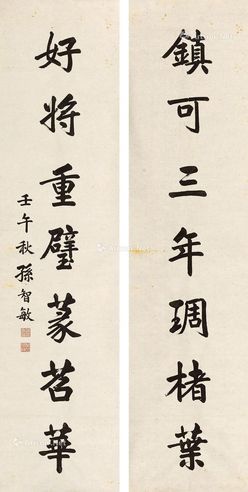 鎮可三年琱楮葉
好將重璧篆苕華
壬午秋孫智敏